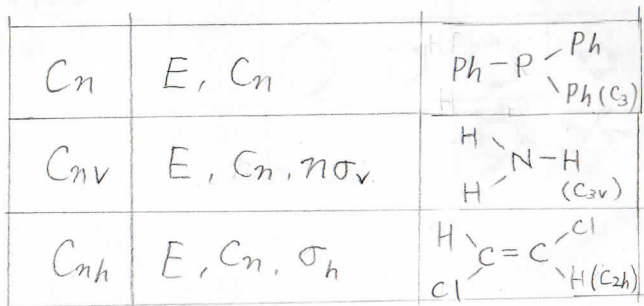 Cn E, Cn Ph-P Ph
Ph (C3)
Cnv E, Cn, nσv H N-H
H (C3v)
Cnh E, Cn, σh H C=C Cl
Cl H (C2h)